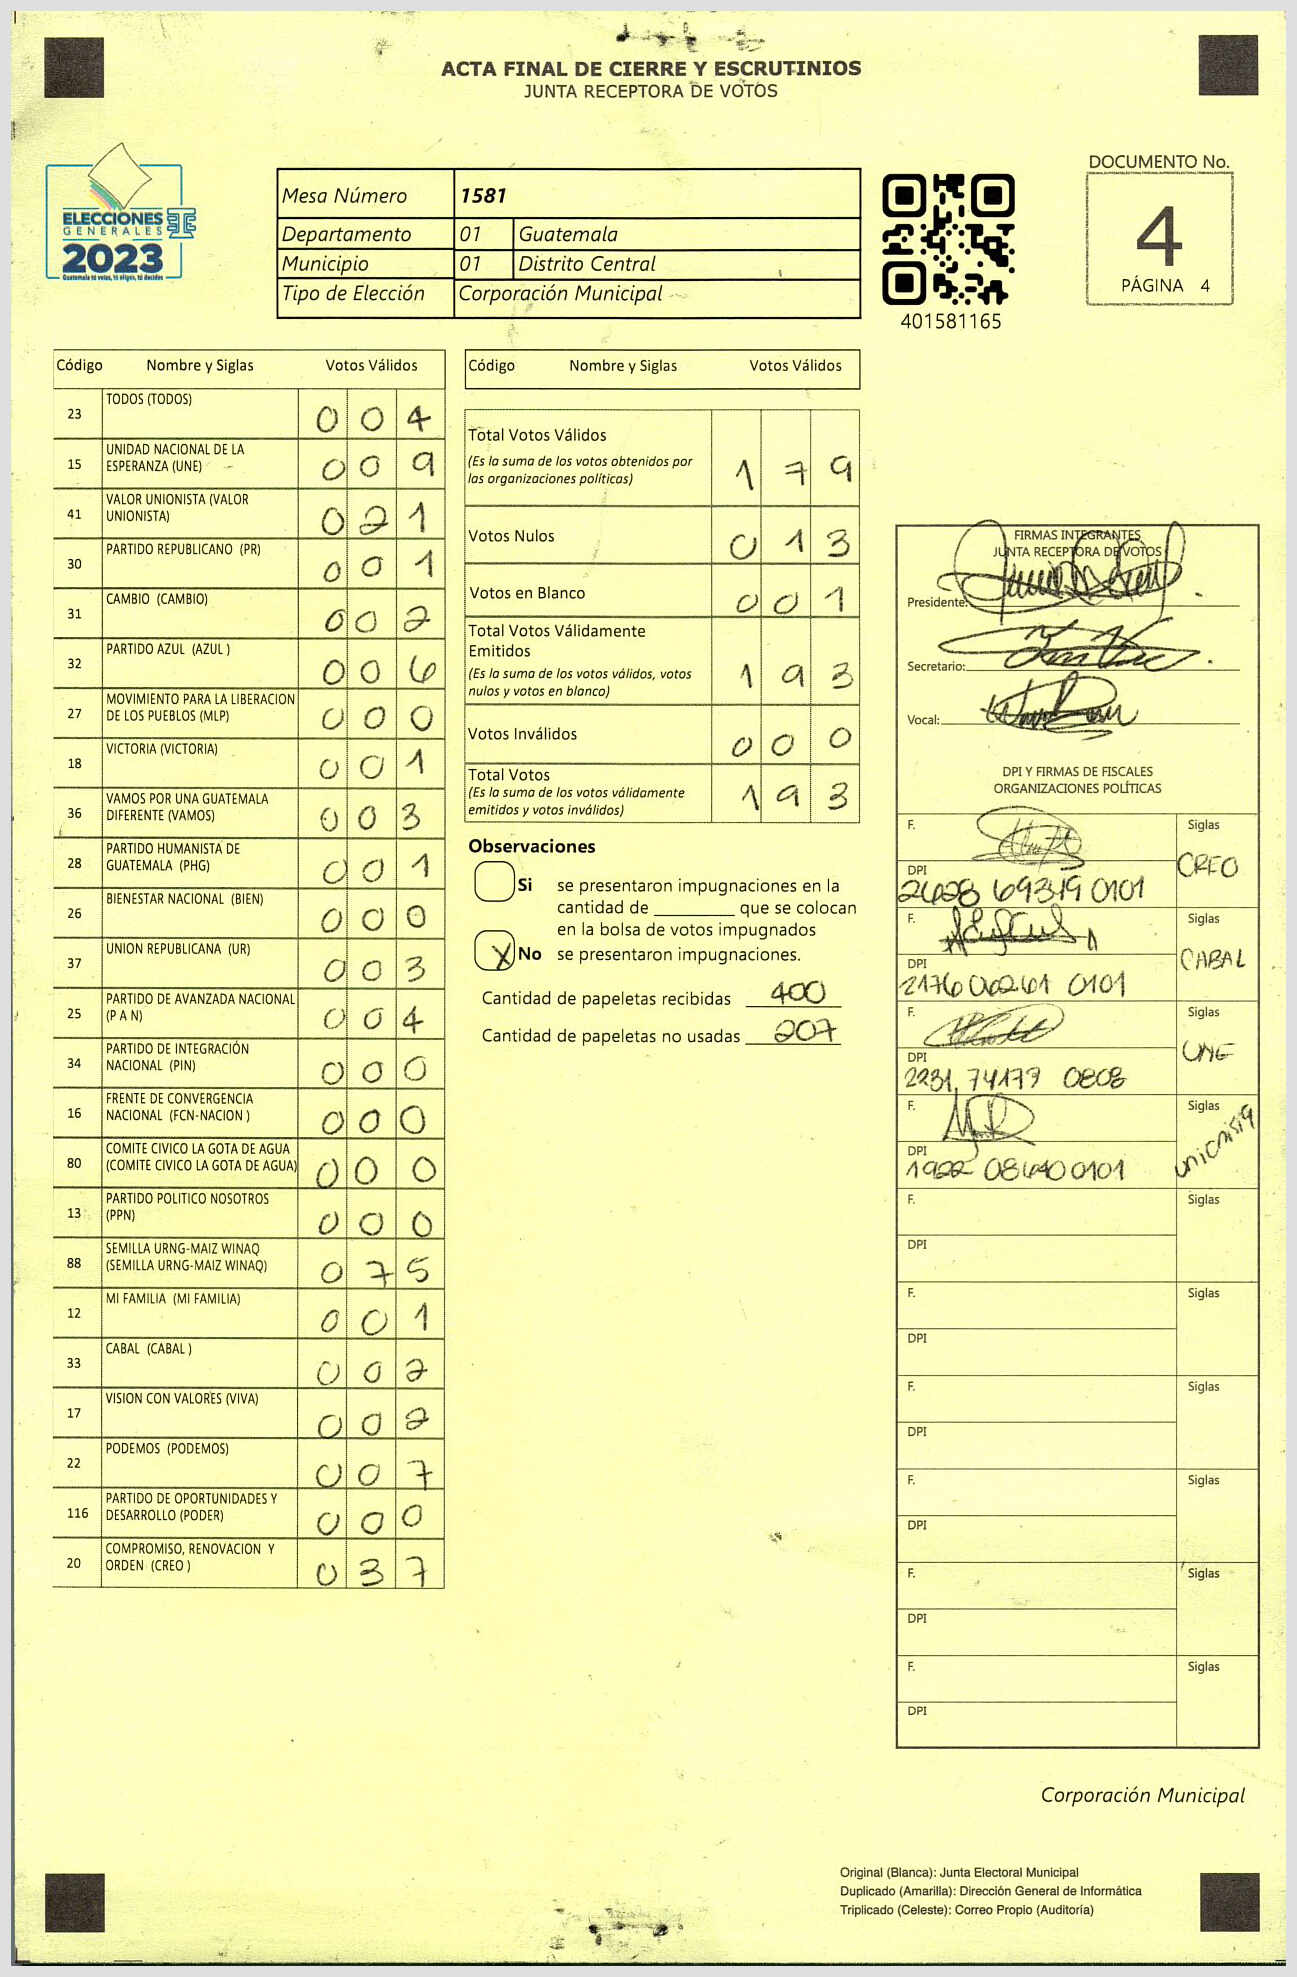 ACTA FINAL DE CIERRE Y ESCRUTINIOS
JUNTA RECEPTORA DE VOTOS
ELECCIONES
GENERALES
2023
Guatemala tú votas, tú eliges, tú decides
Mesa Número 1581
Departamento 01 Guatemala
Municipio 01 Distrito Central
Tipo de Elección Corporación Municipal
401581165
DOCUMENTO No.
4
PÁGINA 4
Código Nombre y Siglas Votos Válidos
23 TODOS (TODOS) 0 0 4
15 UNIDAD NACIONAL DE LA
ESPERANZA (UNE) 0 0 9
41 VALOR UNIONISTA (VALOR
UNIONISTA) 0 2 1
30 PARTIDO REPUBLICANO (PR) 0 0 1
31 CAMBIO (CAMBIO) 0 0 2
32 PARTIDO AZUL (AZUL ) 0 0 6
27 MOVIMIENTO PARA LA LIBERACION
DE LOS PUEBLOS (MLP) 0 0 0
18 VICTORIA (VICTORIA) 0 0 1
36 VAMOS POR UNA GUATEMALA
DIFERENTE (VAMOS) 0 0 3
28 PARTIDO HUMANISTA DE
GUATEMALA (PHG) 0 0 1
26 BIENESTAR NACIONAL (BIEN) 0 0 0
37 UNION REPUBLICANA (UR) 0 0 3
25 PARTIDO DE AVANZADA NACIONAL
(P A N) 0 0 4
34 PARTIDO DE INTEGRACIÓN
NACIONAL (PIN) 0 0 0
16 FRENTE DE CONVERGENCIA
NACIONAL (FCN-NACION ) 0 0 0
80 COMITE CIVICO LA GOTA DE AGUA
(COMITE CIVICO LA GOTA DE AGUA) 0 0 0
13 PARTIDO POLITICO NOSOTROS
(PPN) 0 0 0
88 SEMILLA URNG-MAIZ WINAQ
(SEMILLA URNG-MAIZ WINAQ) 0 7 5
12 MI FAMILIA (MI FAMILIA) 0 0 1
33 CABAL (CABAL ) 0 0 2
17 VISION CON VALORES (VIVA) 0 0 2
22 PODEMOS (PODEMOS) 0 0 7
116 PARTIDO DE OPORTUNIDADES Y
DESARROLLO (PODER) 0 0 0
20 COMPROMISO, RENOVACION Y
ORDEN (CREO ) 0 3 7
Código Nombre y Siglas Votos Válidos
Total Votos Válidos
(Es la suma de los votos obtenidos por
las organizaciones políticas) 1 7 9
Votos Nulos 0 1 3
Votos en Blanco 0 0 1
Total Votos Válidamente
Emitidos
(Es la suma de los votos válidos, votos
nulos y votos en blanco) 1 9 3
Votos Inválidos 0 0 0
Total Votos
(Es la suma de los votos válidamente
emitidos y votos inválidos) 1 9 3
Observaciones
Si se presentaron impugnaciones en la
cantidad de ________ que se colocan
en la bolsa de votos impugnados
X No se presentaron impugnaciones.
Cantidad de papeletas recibidas 400
Cantidad de papeletas no usadas 207
FIRMAS INTEGRANTES
JUNTA RECEPTORA DE VOTOS
Presidente:
Secretario:
Vocal:
DPI Y FIRMAS DE FISCALES
ORGANIZACIONES POLÍTICAS
F. Siglas
CREO
DPI
2628 69319 0101
F. Siglas
CABAL
DPI
2176 06261 0101
F. Siglas
UNE
DPI
2231 74177 0808
F. Siglas
unionista
DPI
1922 08640 0101
F. Siglas
DPI
F. Siglas
DPI
F. Siglas
DPI
F. Siglas
DPI
F. Siglas
DPI
F. Siglas
DPI
Corporación Municipal
Original (Blanca): Junta Electoral Municipal
Duplicado (Amarilla): Dirección General de Informática
Triplicado (Celeste): Correo Propio (Auditoría)